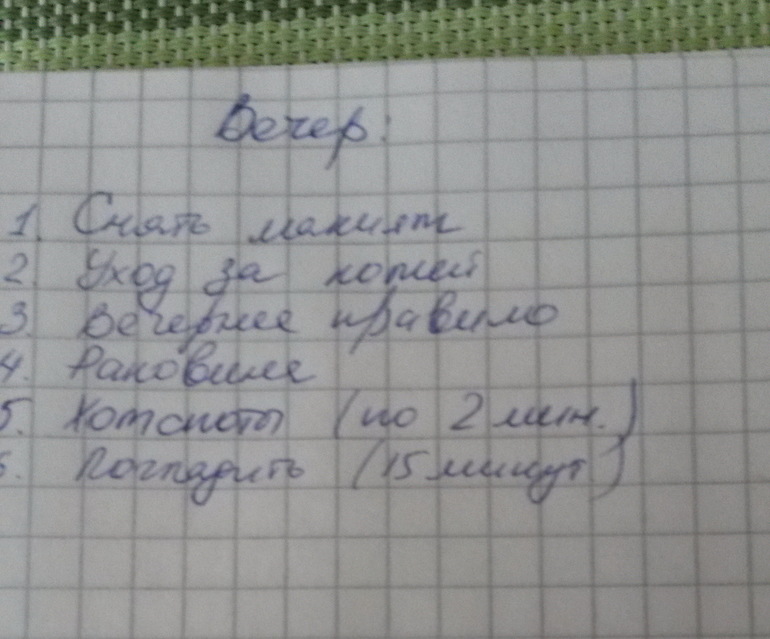 Вечер:
1. Снять макияж
2. Уход за кожей
3. Вечернее правило
4. Раковина
5. Хотспоты (по 2 мин.)
6. Погладить (15 минут)